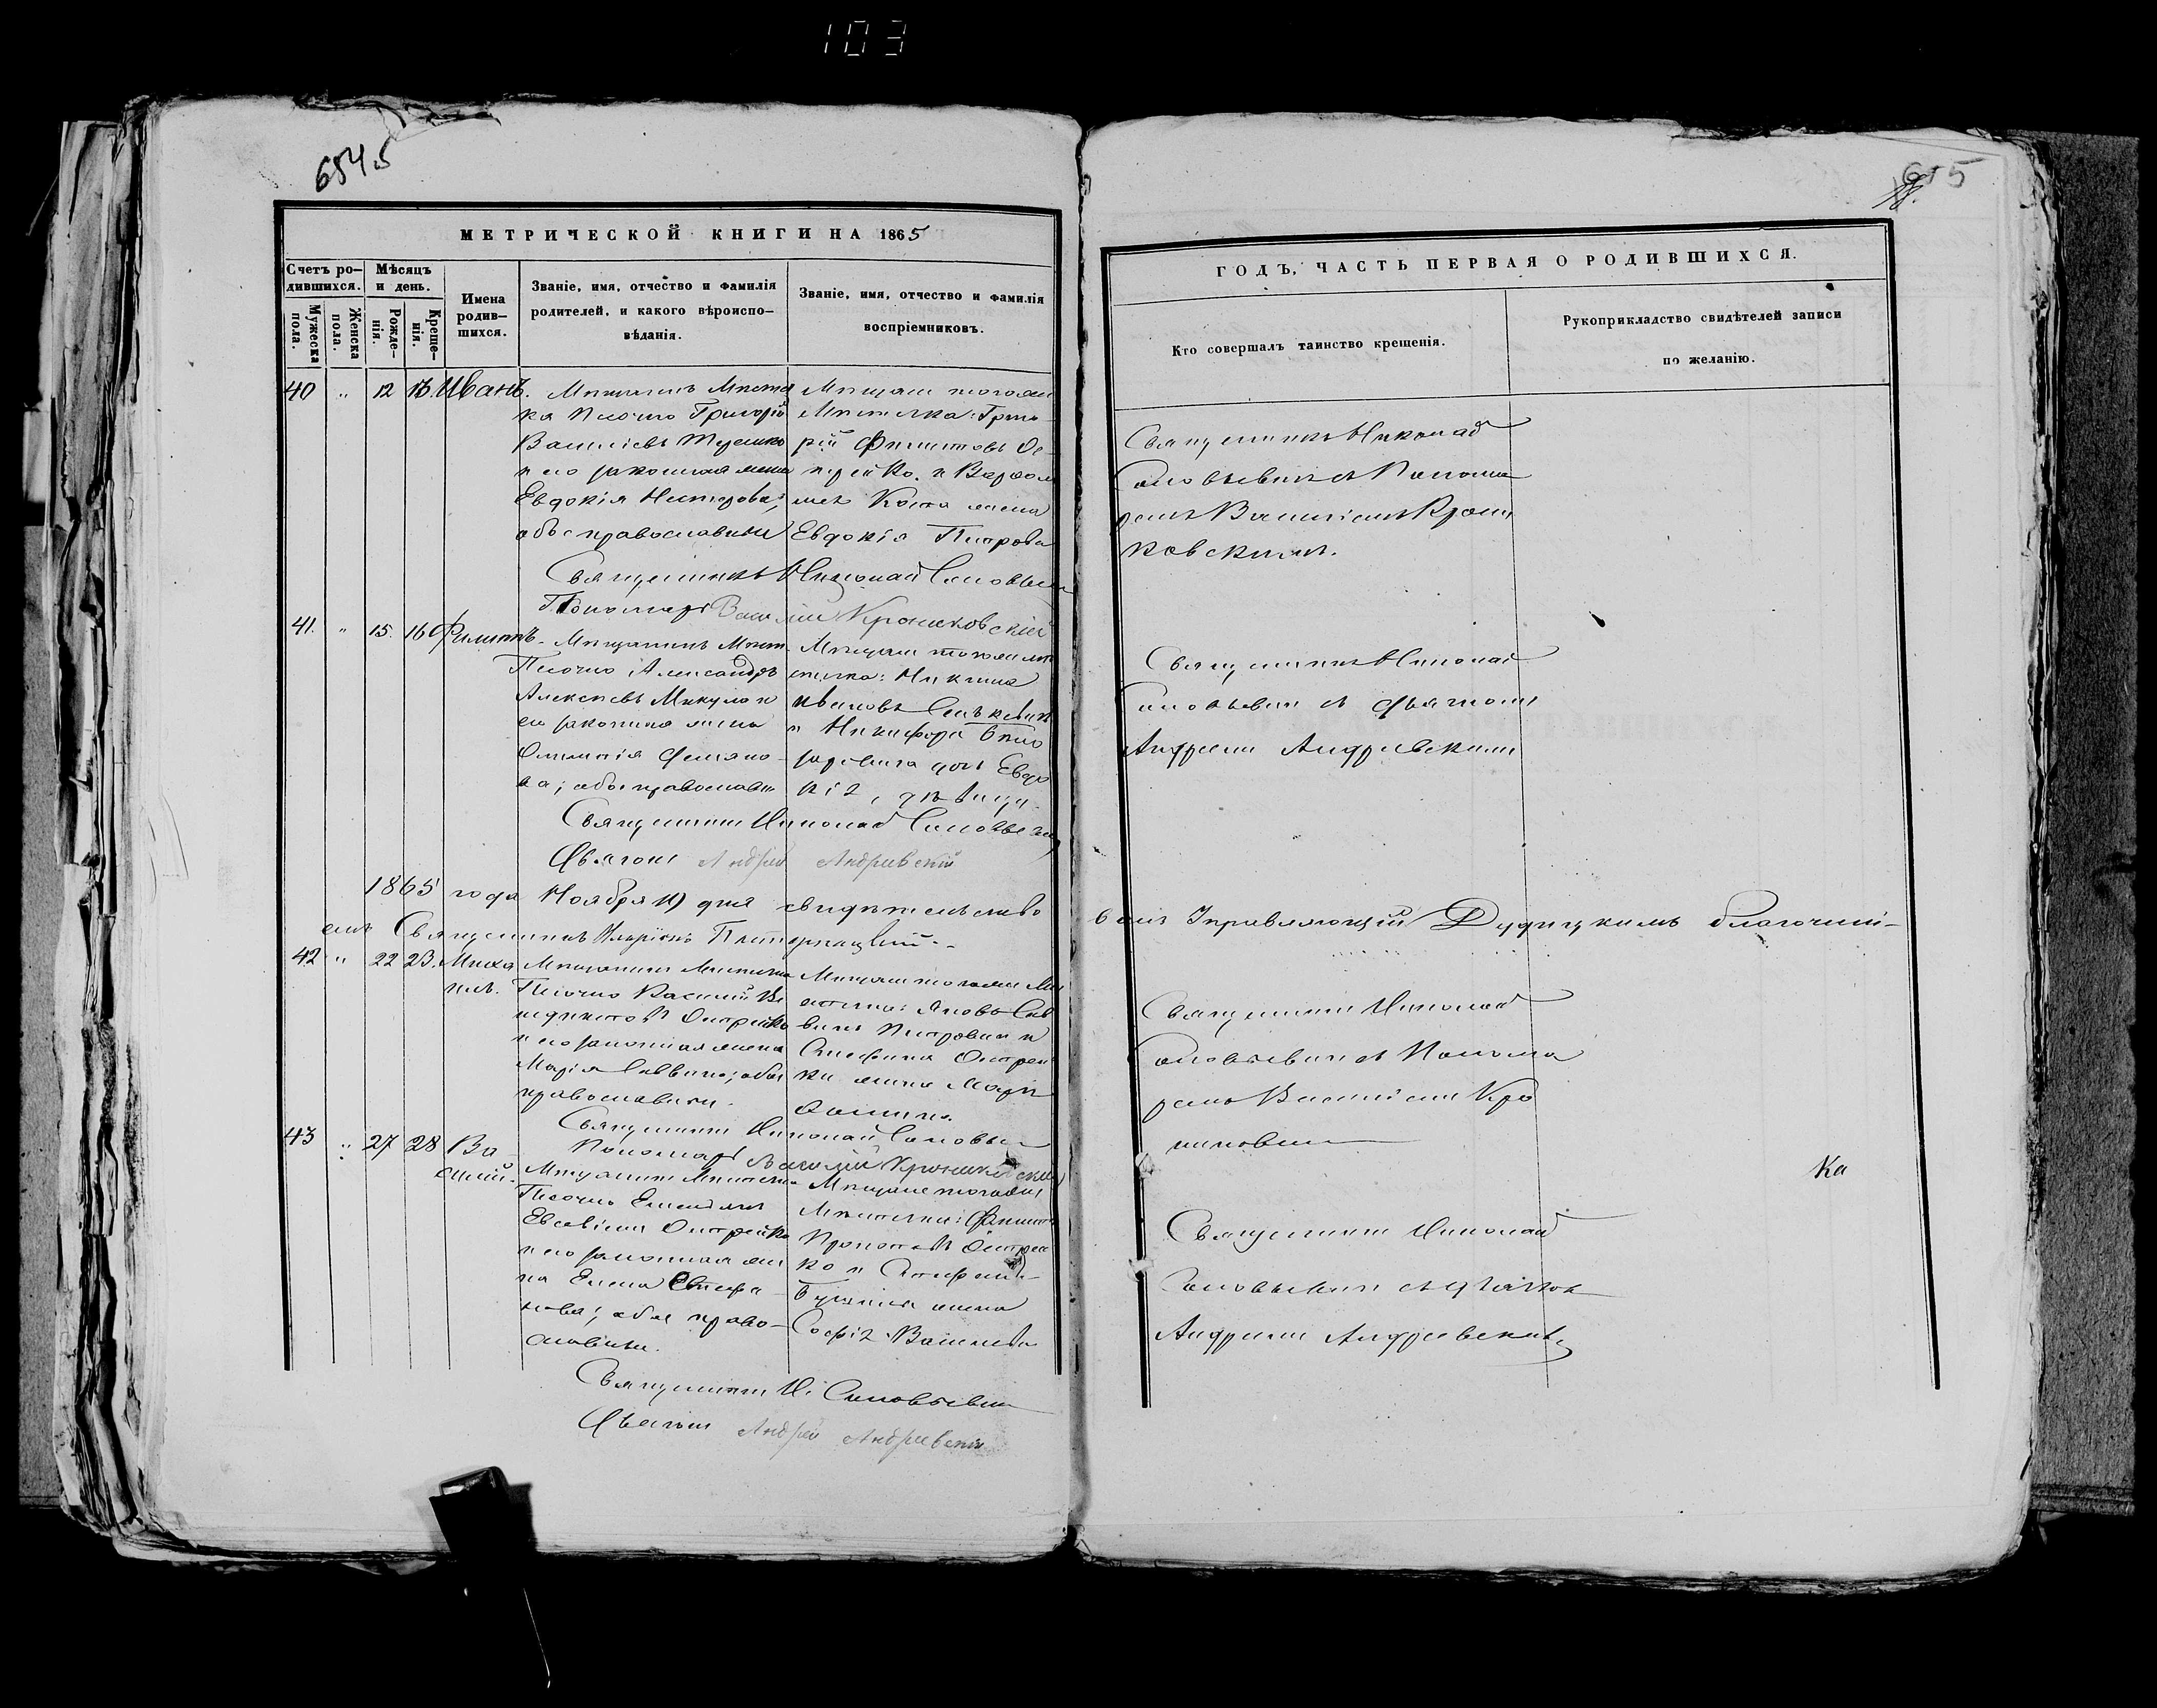 103
654.5
655
18.
МЕТРИЧЕСКОЙ КНИГИ НА 1865
Счетъ родившихся.
Мѣсяцъ и день.
Мужеска пола.
Женска пола.
Рожденія.
Крещенія.
Имена родившихся.
Званіе, имя, отчество и фамилія
родителей, и какого вѣроисповѣданія.
Званіе, имя, отчество и фамилія
воспріемниковъ.
40 " 12 13. Иванъ.
Мѣщанинъ Мѣстеч
ка Песочно Григорій
Василіевъ
и его законная жена
Евдокія Несторова;
обое православные
Мѣщане тогоже
Мѣстечка: Григо
рій Филиповъ Ос
трейко. и Варфоло
мея Коста жена
Евдокія Петрова
Священникъ Николай Соловьевичъ
Пономарь Василій Кронековскій
41. " 15. 16 Филиппъ.
Мѣщанинъ Мѣст.
Песочно Александръ
Алексѣевъ Микуло и
его законная жена
ва; обое православн
Мѣщане тогоже мѣ
стечка: Никита
Ивановъ
и Никифора
дочь Евдо
кія, дѣвица.
Священникъ Николай Соловьевичъ
Дьячокъ Андрей Андреевскій
1865 года Ноября 19 дня свидѣтельство
валъ Управляющій Дудицкимъ благочині-
емъ Священникъ
42 " 22 23. Миха
илъ.
Мѣщанинъ Мѣстечка
Песочно Василій Ве
недиктовъ Острейко
и его законная жена
Марія Саввина; обое
православные.
Мѣщане тогоже Мѣ
стечка: Яковъ Сав
винъ Петровичъ и
Стефана Острей
ки жена Марія
Священникъ Николай Соловьевичъ
Пономарь Василій Кронековскій
43 " 27 28 Ва
силій.
Мѣщанинъ Мѣстечка
Песочно Емельянъ
Евсевіевъ Острейко
и его законная же
на Елена Стефа
нова; обое право-
славные.
Мѣщане тогоже
Мѣстечка: Филиппъ
Острей
ко и Стефана
жена
Софія Васильева
Священникъ Н. Соловьевичъ
Дьячокъ Андрей Андреевскій
ГОДЪ, ЧАСТЬ ПЕРВАЯ О РОДИВШИХСЯ.
Кто совершалъ таинство крещенія.
Рукоприкладство свидѣтелей записи
по желанію.
Священникъ Николай
Соловьевичъ съ Понома
ремъ Василіемъ Крони
ковскимъ.
Священникъ Николай
Соловьевичъ съ Дьячкомъ
Андреемъ Андреевскимъ
Священникъ Николай
Соловьевичъ съ Понома
ремъ Василіемъ Кро
Ка
Священникъ Николай
Соловьевичъ съ Дьячком
Андреемъ Андреевскимъ